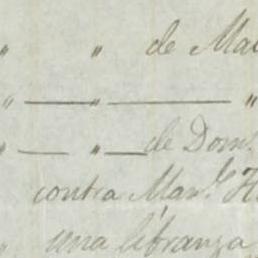 " " de Ma
" — " — "
" — " — de Dom.
contra Man.l
una libranza
"